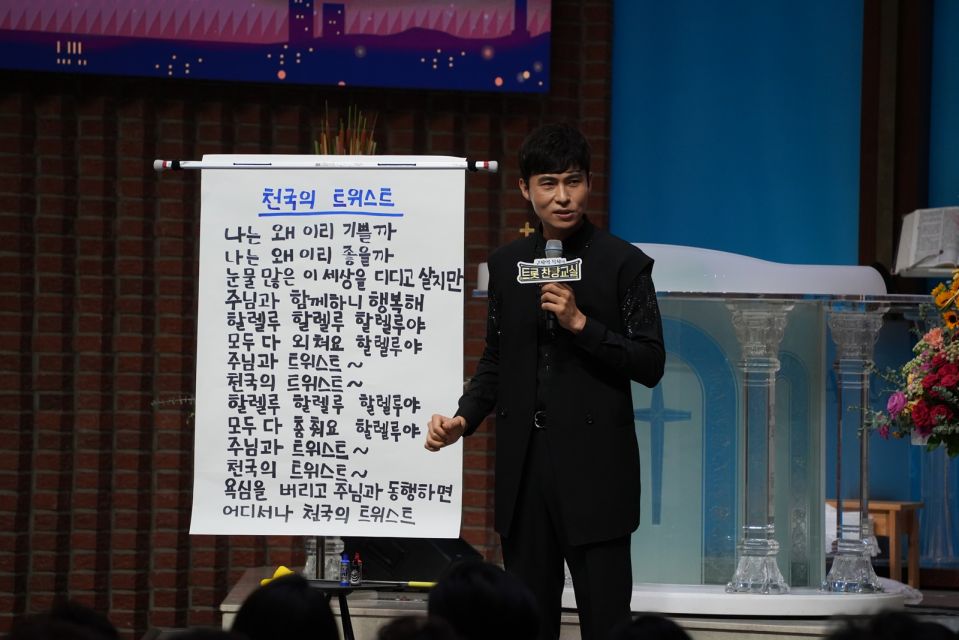 천국의 트위스트
나는 왜 이리 기쁠까
나는 왜 이리 좋을까
눈물 많은 이 세상을 디디고 살지만
주님과 함께하니 행복해
할렐루 할렐루 할렐루야
모두 다 외쳐요 할렐루야
주님과 트위스트~
천국의 트위스트~
할렐루 할렐루 할렐루야
모두 다 춤춰요 할렐루야
주님과 트위스트~
천국의 트위스트~
욕심을 버리고 주님과 동행하면
어디서나 천국의 트위스트
트롯 찬양교실